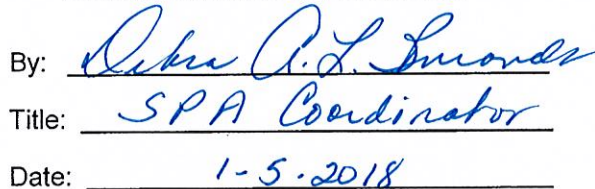 By: Debra A. L.
Title: SPA Coordinator
Date: 1-5-2018